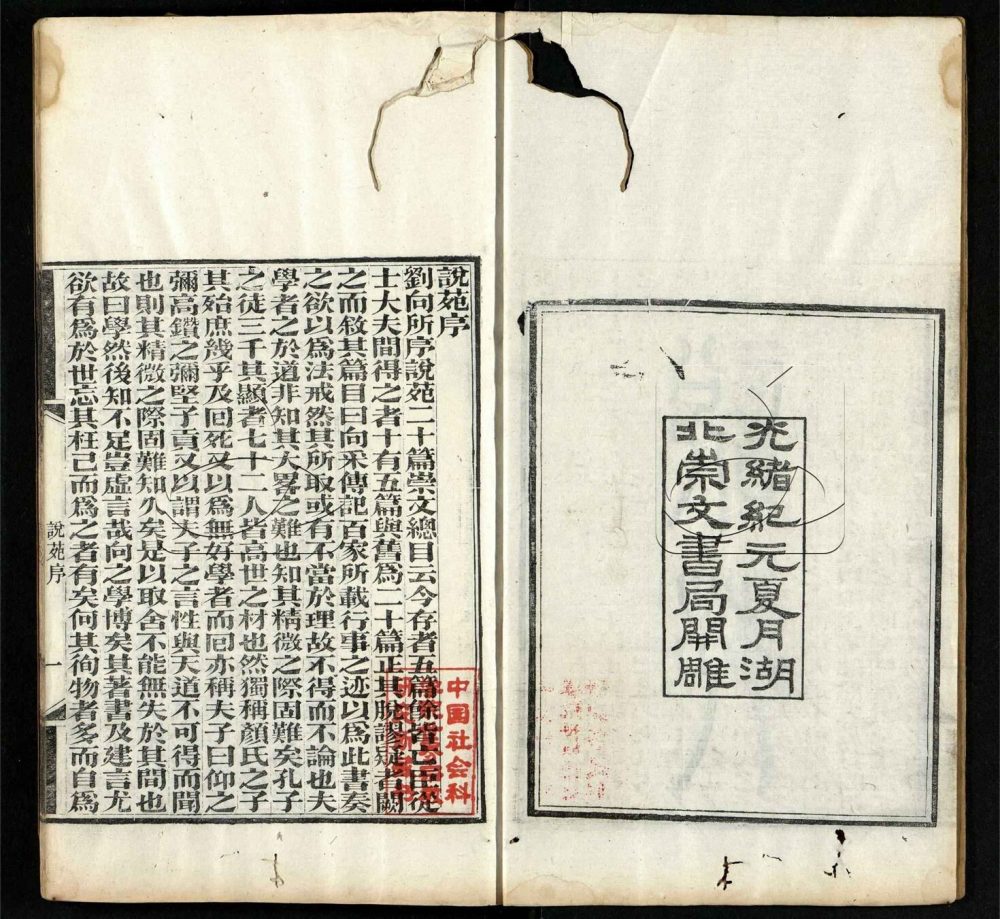 光緒紀元夏月湖
北崇文書局開雕
說苑序
劉向所序說苑二十篇崇文總目云今存者五篇餘皆亡臣從
士大夫間得之者十有五篇與舊爲二十篇正其脫謬疑者闕
之而敘其篇目曰向采傳記百家所載行事之迹以爲此書奏
之欲以爲法戒然其所取或有不當於理故不得而不論也夫
學者之於道非知其大畧之難也知其精微之際固難矣孔子
之徒三千其顯者七十二人皆高世之材也然獨稱顏氏之子
其殆庶幾乎及回死又以爲無好學者而回亦稱夫子曰仰之
彌高鑽之彌堅子貢又以謂夫子之言性與天道不可得而聞
也則其精微之際固難知久矣是以取舍不能無失於其間也
故曰學然後知不足豈虛言哉向之學博矣其著書及建言尤
欲有爲於世忘其枉己而爲之者有矣何其徇物者多而自爲
說苑序
一
中国社会科